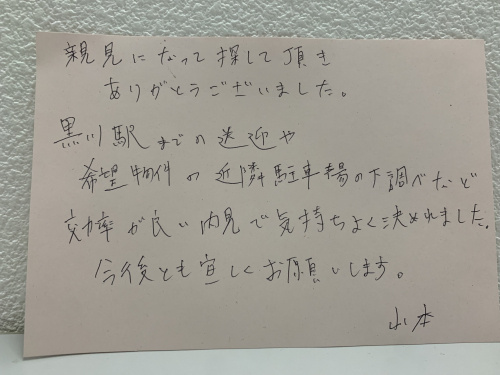 親見になって探して頂き
ありがとうございました。
黒川駅までの送迎や
希望物件の近隣駐車場の下調べなど
効率が良い内見で気持ちよく決めれました。
今後とも宜しくお願いします。
山本